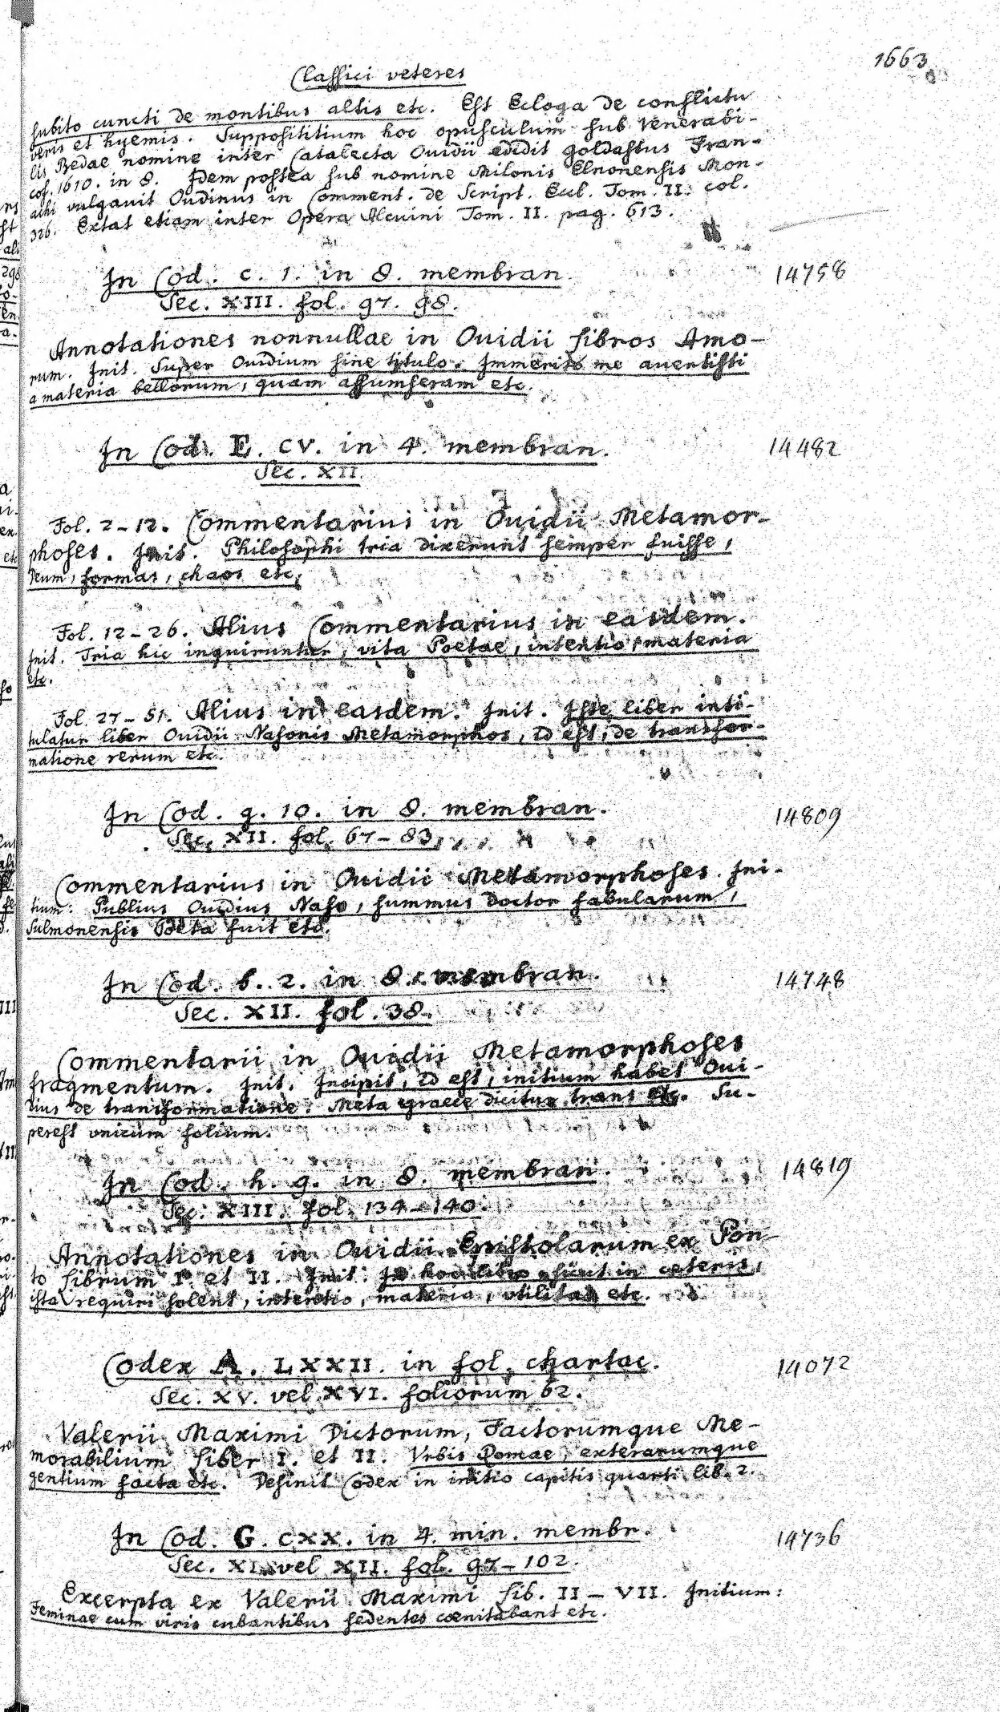 1663
Classici veteres
Subito cuncti de montibus altis etc. Est Ecloga de conflictu
veris et hyemis. Supposititium hoc opusculum sub Venerabi-
lis Bedae nomine inter Catalecta Ouidii edidit Goldastus Fran-
cof. 1610. in 8. Idem postea sub nomine Milonis Elnonensis Mon-
achi vulgavit Oudinus in Comment. de Script. Eccl. Tom. II. col.
326. Extat etiam inter Opera Alcuini Tom. II. pag. 613.
In Cod. c. 1. in 8. membran. 14758
Sec. XIII. fol. 97. 98.
Annotationes nonnullae in Ouidii libros Amo-
rum. Init. Super Ouidium sine titulo. Immerito me auertisti
a materia bellorum, quam assumseram etc.
In Cod. E. CV. in 4. membran. 14482
Sec. XII.
Fol. 2-12. Commentarius in Ouidii Metamor-
phoses. Init. Philosophi tria dixerunt semper fuisse,
Deum, formas, chaos etc.
Fol. 12-26. Alius Commentarius in easdem.
Init. Tria hic inquiruntur, vita Poetae, intentio, materia
etc.
Fol. 27-51. Alius in easdem. Init. Iste liber inti-
tulatur liber Ouidii Nasonis Metamorphos, id est, de transfor-
matione rerum etc.
In Cod. g. 10. in 8. membran. 14809
Sec. XII. fol. 67-83.
Commentarius in Ouidii Metamorphoses. Ini-
tium: Publius Ouidius Naso, summus Doctor fabularum,
Sulmonensis Poeta fuit etc.
In Cod. b. 2. in 8. membran. 14748
Sec. XII. fol. 38.
Commentarii in Ouidii Metamorphoses
fragmentum. Init. Incipit, id est, initium habet Oui-
dius de transformatione. Meta graece dicitur trans etc. Su-
perest unicum folium.
In Cod. h. 9. in 8. membran. 14819
Sec. XIII. fol. 134-140.
Annotationes in Ouidii Epistolarum ex Pon-
to librum I. et II. Init. In hoc libro sunt in ceteris,
ista requiri solent, intentio, materia, utilitas etc.
Codex A. LXXII. in fol. chartac. 14072
Sec. XV. vel XVI. foliorum 62.
Valerii Maximi Dictorum, Factorumque Me-
morabilium Liber I. et II. Vrbis Romae, exterarumque
gentium facta etc. Definit Codex in initio capitis quarti lib. 2.
In Cod. G. CXX. in 4. min. membr. 14736
Sec. XI. vel XII. fol. 97-102.
Excerpta ex Valerii Maximi lib. II-VII. Initium:
Feminae cum viris cubantibus sedentes coenitabant etc.